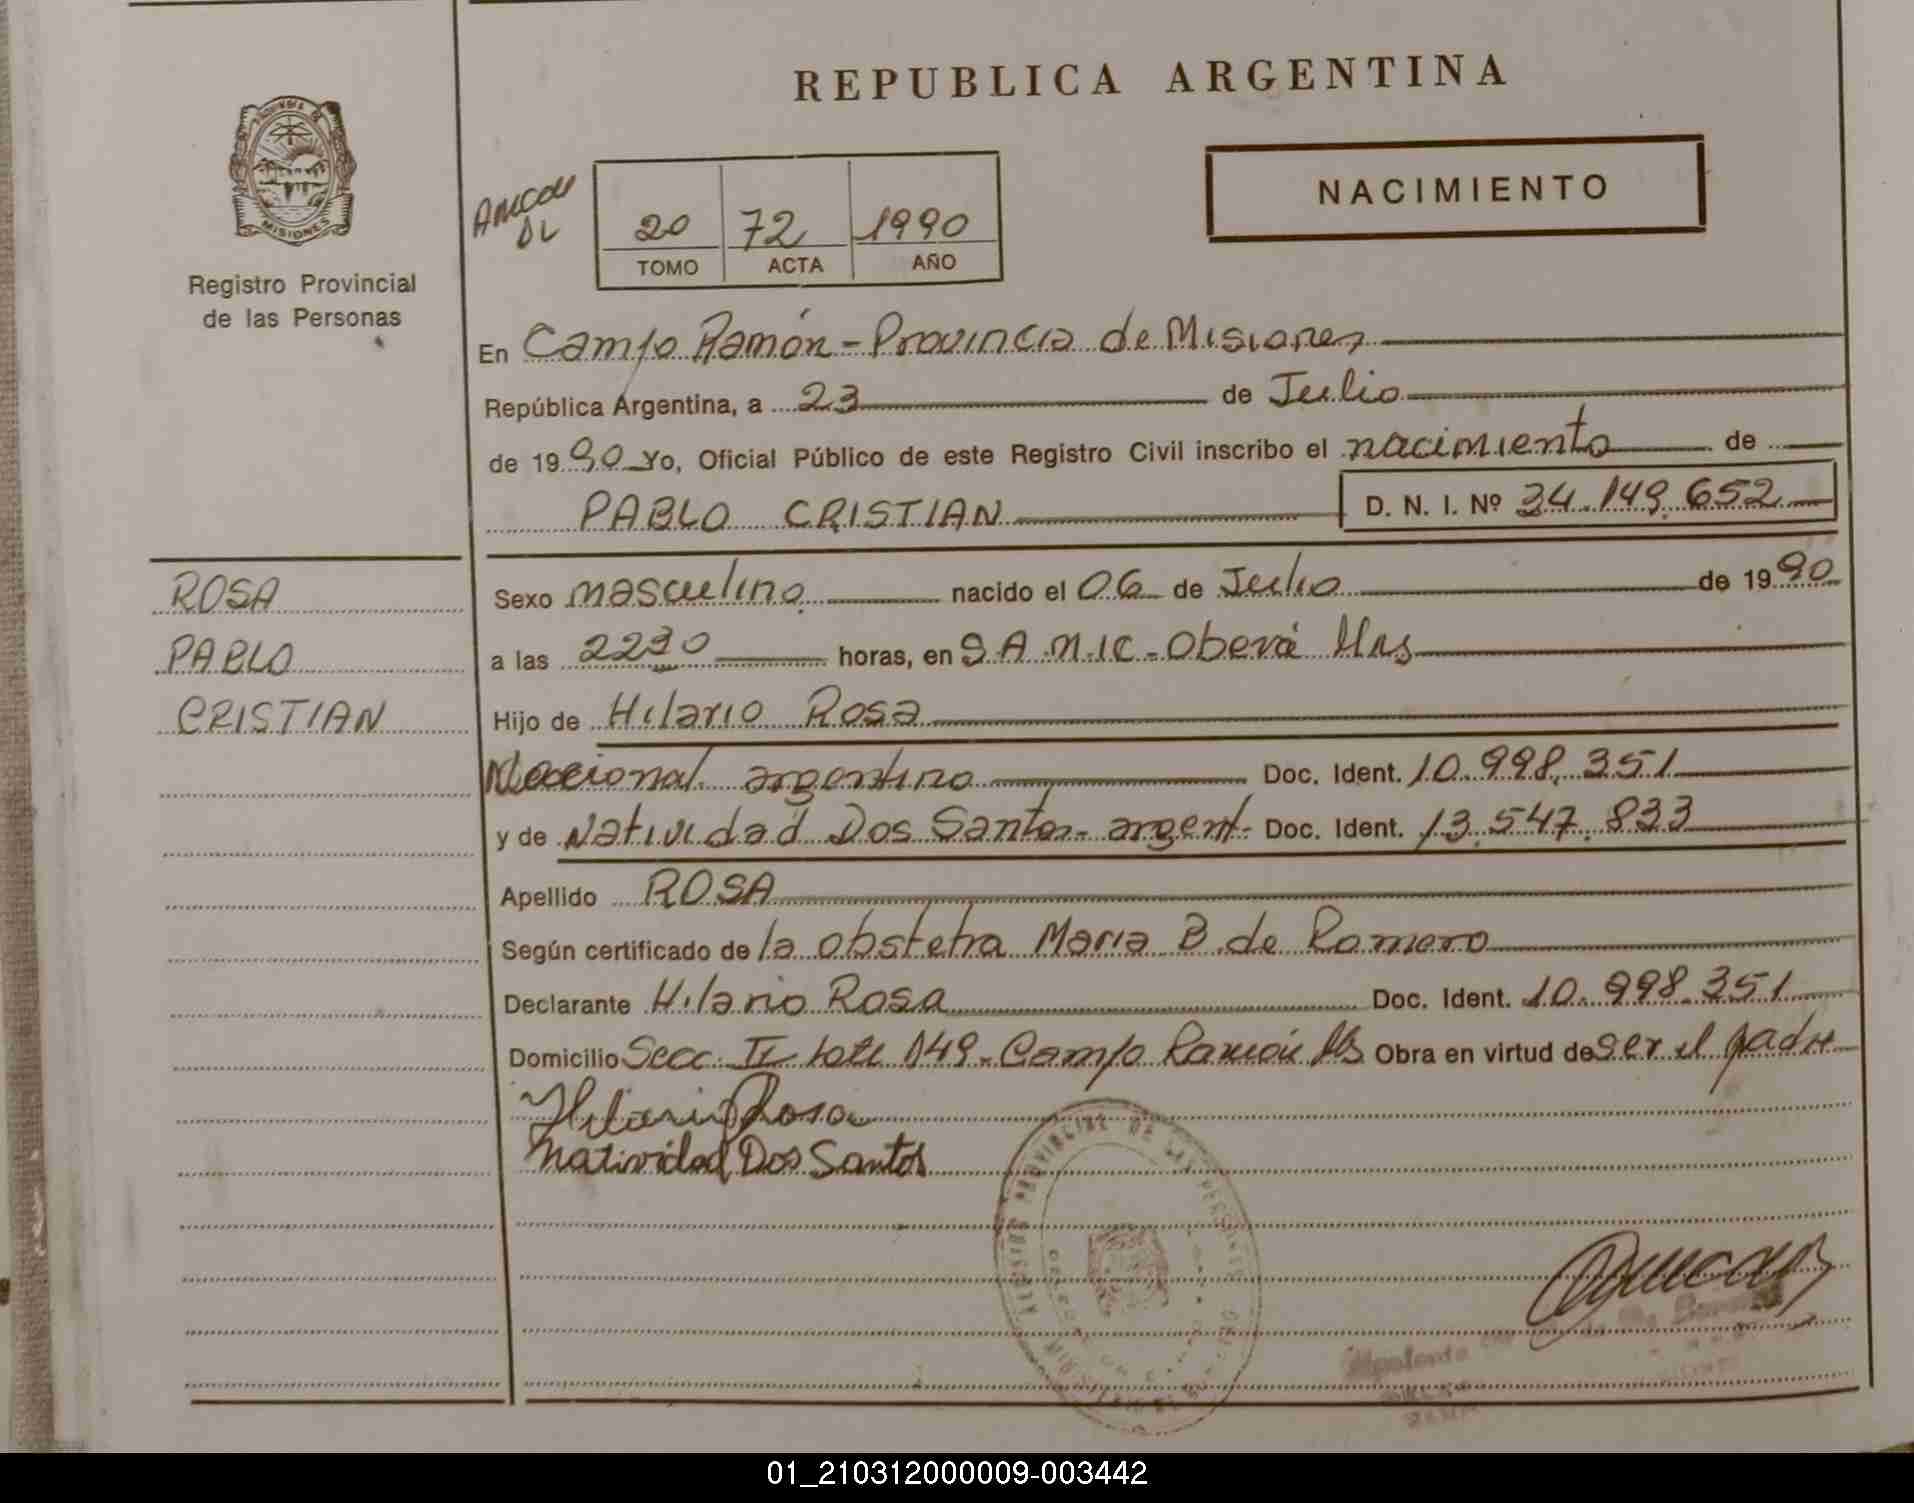 REPUBLICA ARGENTINA
NACIMIENTO
PROVINCIA
MISIONES
Registro Provincial
de las Personas
20 72 1990
TOMO ACTA AÑO
En Campo Ramón - Provincia de Misiones
República Argentina, a 23 de Julio
de 1990 Yo, Oficial Público de este Registro Civil inscribo el nacimiento de
PABLO CRISTIAN D. N. I. Nº 34.149.652
ROSA
PABLO
CRISTIAN
Sexo masculino nacido el 06 de Julio de 1990
a las 2230 horas, en S.A.M.I.C - Oberá Mns
Hijo de Hilario Rosa
Nacional argentino Doc. Ident. 10.998.351
y de Natividad Dos Santos - argent. Doc. Ident. 13.547.833
Apellido ROSA
Según certificado de la obstetra Maria B. de Romero
Declarante Hilario Rosa Doc. Ident. 10.998.351
Domicilio Secc. II lote 149 - Campo Ramón Ms Obra en virtud de ser el padre
Hilario Rosa
Natividad Dos Santos
01_210312000009-003442